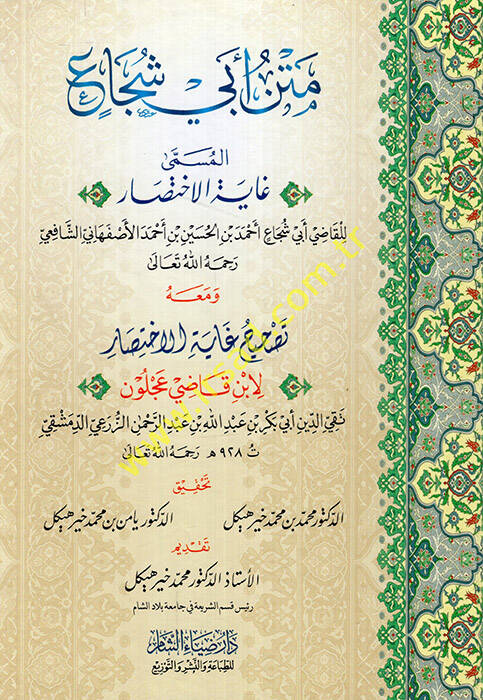 مَتْنُ أَبِي شُجَاعٍ
المُسَمَّى
غَايَةَ الِاخْتِصَارِ
لِلْقَاضِي أَبِي شُجَاعٍ أَحْمَدَ بْنِ الْحُسَيْنِ بْنِ أَحْمَدَ الْأَصْفَهَانِيِّ الشَّافِعِيِّ
رَحِمَهُ اللهُ تَعَالَى
وَمَعَهُ
تَصْحِيحُ غَايَةِ الِاخْتِصَارِ
لِابْنِ قَاضِي عَجْلُون
تَقِيِّ الدِّينِ أَبِي بَكْرِ بْنِ عَبْدِ اللهِ بْنِ عَبْدِ الرَّحْمَنِ الزُّرَعِيِّ الدِّمَشْقِيِّ
ت ٩٢٨ هـ رَحِمَهُ اللهُ تَعَالَى
تَحْقِيق
الدكتور محمد بن محمد خير هيكل الدكتور يامن بن محمد خير هيكل
تَقْدِيم
الأستاذ الدكتور محمد خير هيكل
رئيس قسم الشريعة في جامعة بلاد الشام
دار ضياء الشام
للطباعة والنشر والتوزيع